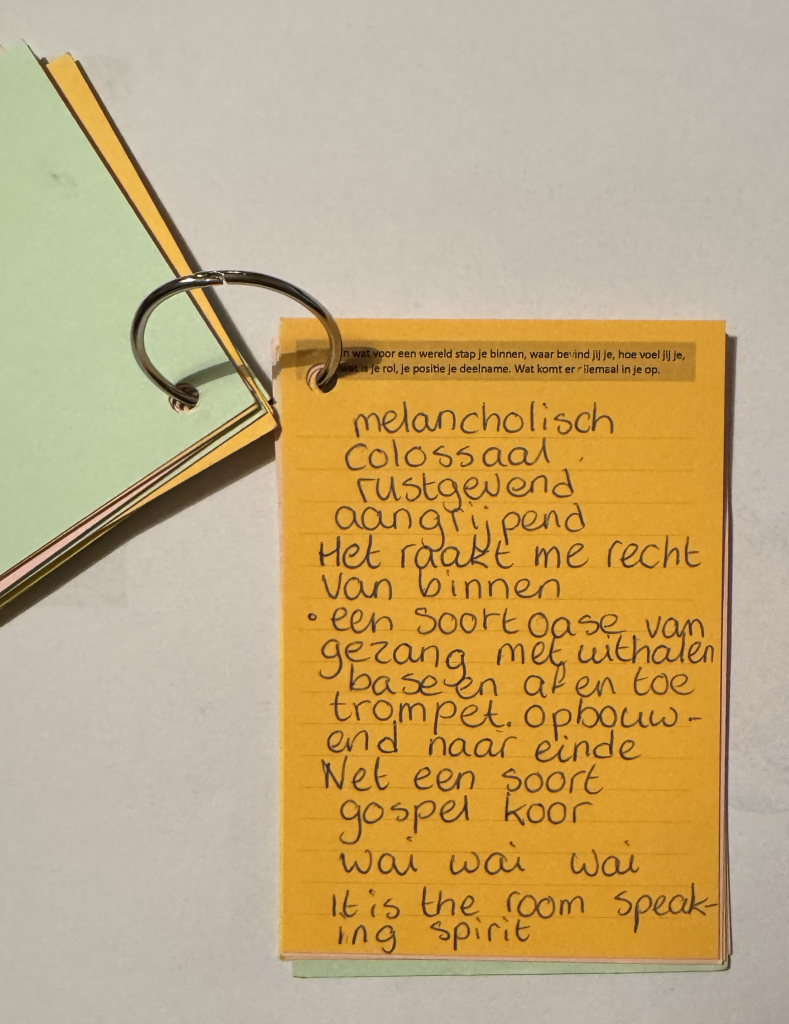 In wat voor een wereld stap je binnen, waar bevind jij je, hoe voel jij je,
wat is je rol, je positie je deelname. Wat komt er allemaal in je op.
melancholisch
colossaal
rustgevend
aangrijpend
Het raakt me recht
van binnen
• een soort oase van
gezang met uithalen
base en af en toe
trompet. opbouw-
end naar einde
Net een soort
gospel koor
wai wai wai
It is the room speak-
ing spirit